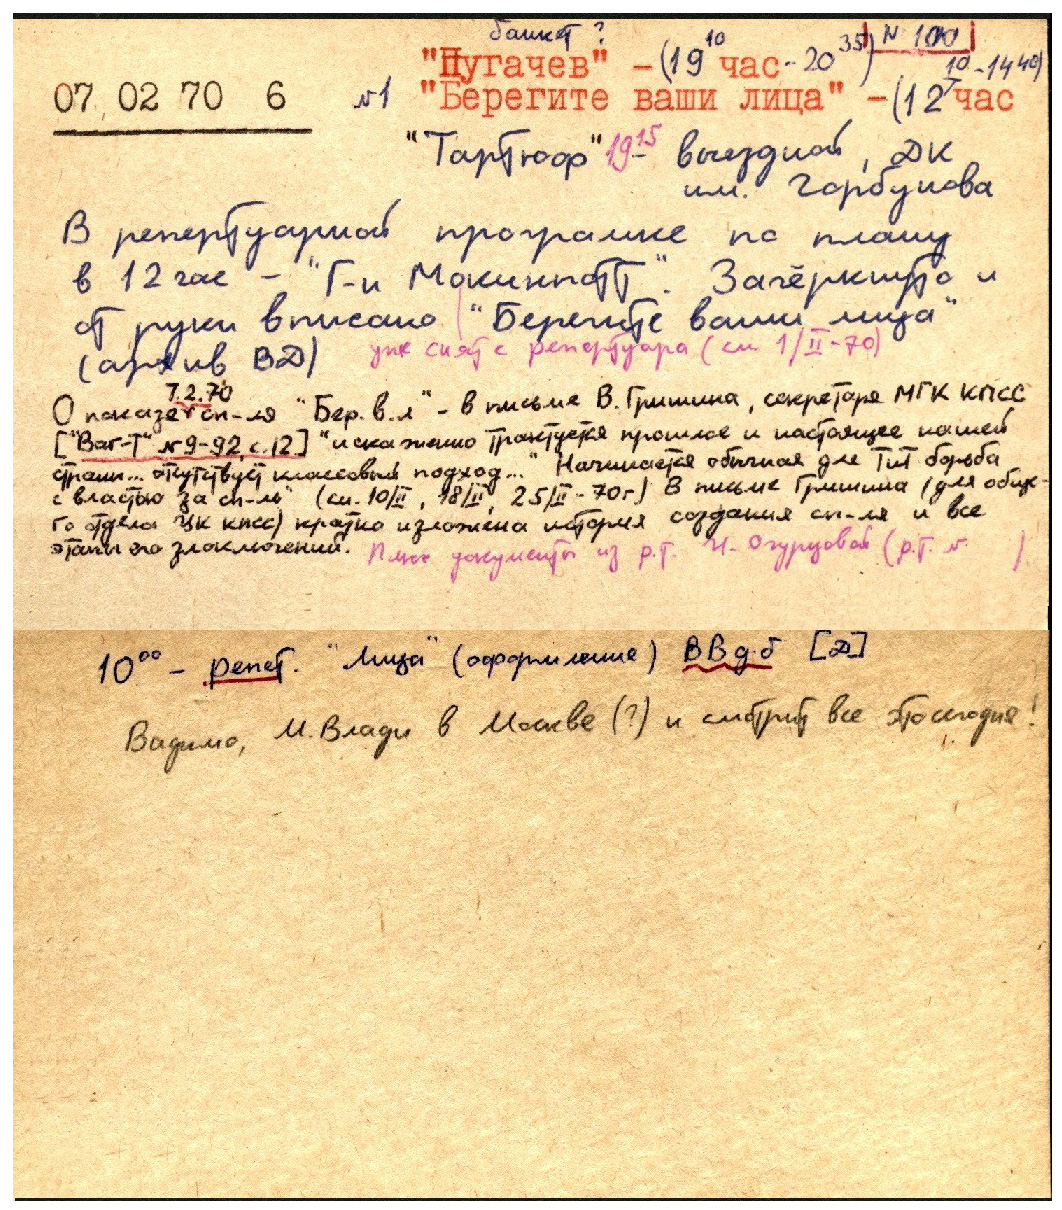 банкет ?
"Пугачев" - (19 10 час - 20 35) N 100
07 02 70 6 №1 "Берегите ваши лица" - (12 10 час - 14 40)
"Тартюф" 19 15 выездной, ДК
им. Горбунова
В репертуарной программке по плану
в 12 час - "Г-н Мокинпотт". Зачёркнуто и
от руки вписано "Берегите ваши лица"
(архив ВД) уже снят с репертуара (см. 1/II-70)
7.2.70
О показе сп-ля "Бер. в. л" - в письме В. Гришина, секретаря МГК КПСС
["Ваг-т" №9-92, с.12] "искаженно трактуется прошлое и настоящее нашей
страны... отсутствует классовый подход..." Начинается обычная для ТнТ борьба
с властью за сп-ль (см. 10/II, 18/II, 25/II-70г.) В письме Гришина (для обще-
го отдела ЦК КПСС) кратко изложена история создания сп-ля и все
этапы его злоключений. Плюс документы из р.т. Н. Огурцовой (р.т. № )
10 00 - репет. "Лица" (оформление) ВВ д.б [Д]
Видимо, М. Влади в Москве (?) и смотрит все это сегодня!